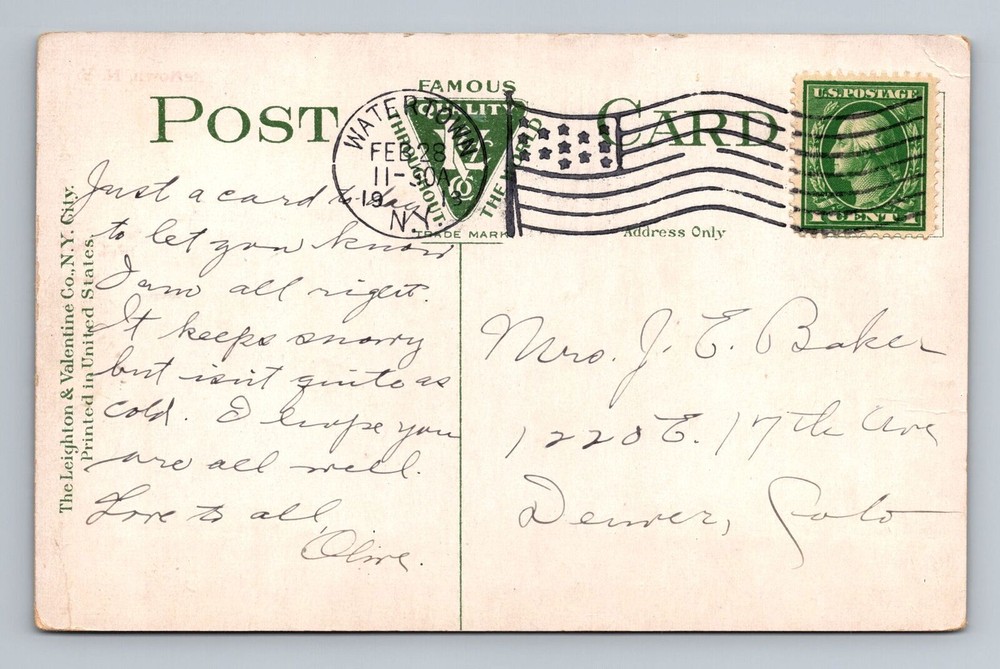 FAMOUS
QUALITY
THROUGHOUT THE WORLD
TRADE MARK
POST CARD
Address Only
WATERTOWN
FEB 28
11-30A
1913
N.Y.
U.S. POSTAGE
1 CENT 1
The Leighton & Valentine Co., N.Y. City.
Printed in United States.
Just a card to day
to let you know
I am all right.
It keeps snowy
but isn't quite as
cold. I hope you
are all well.
Love to all,
Olive.
Mrs. J. E. Baker
1220 E. 17th Ave
Denver, Colo